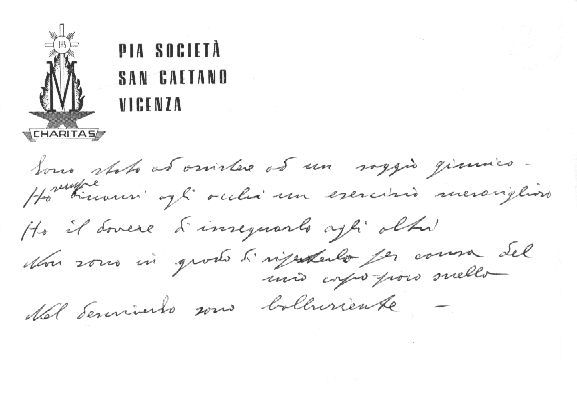 IHS
M
CHARITAS
PIA SOCIETÀ
SAN GAETANO
VICENZA
Sono stato ad assistere ad un saggio ginnico -
sempre
Ho dinanzi agli occhi un esercizio meraviglioso
Ho il dovere di insegnarlo agli altri
Non sono in grado di ripeterlo per causa del
mio corpo poco snello
Nel descriverlo sono balbuziente -